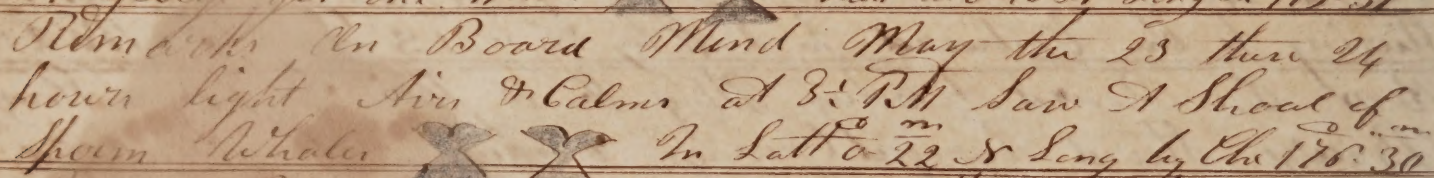 Remarks On Board Mond May the 23 these 24
hours light Airs & Calms at 3 PM Saw A Shoal of
Sperm Whales In Latt 0 22 N Long by Chr 176 30